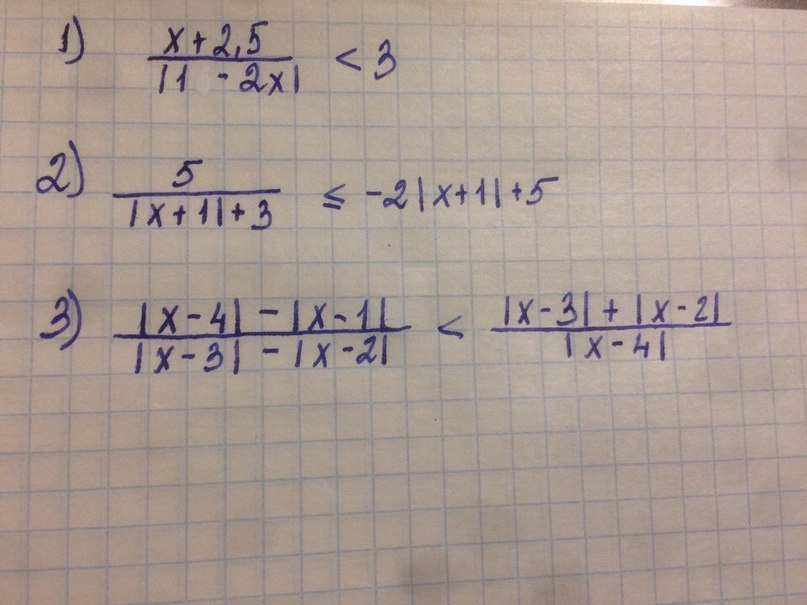 1) x+2,5 / |1 - 2x| < 3
2) 5 / |x+1|+3 ≤ -2|x+1|+5
3) |x-4| - |x-1| / |x-3| - |x-2| < |x-3| + |x-2| / |x-4|